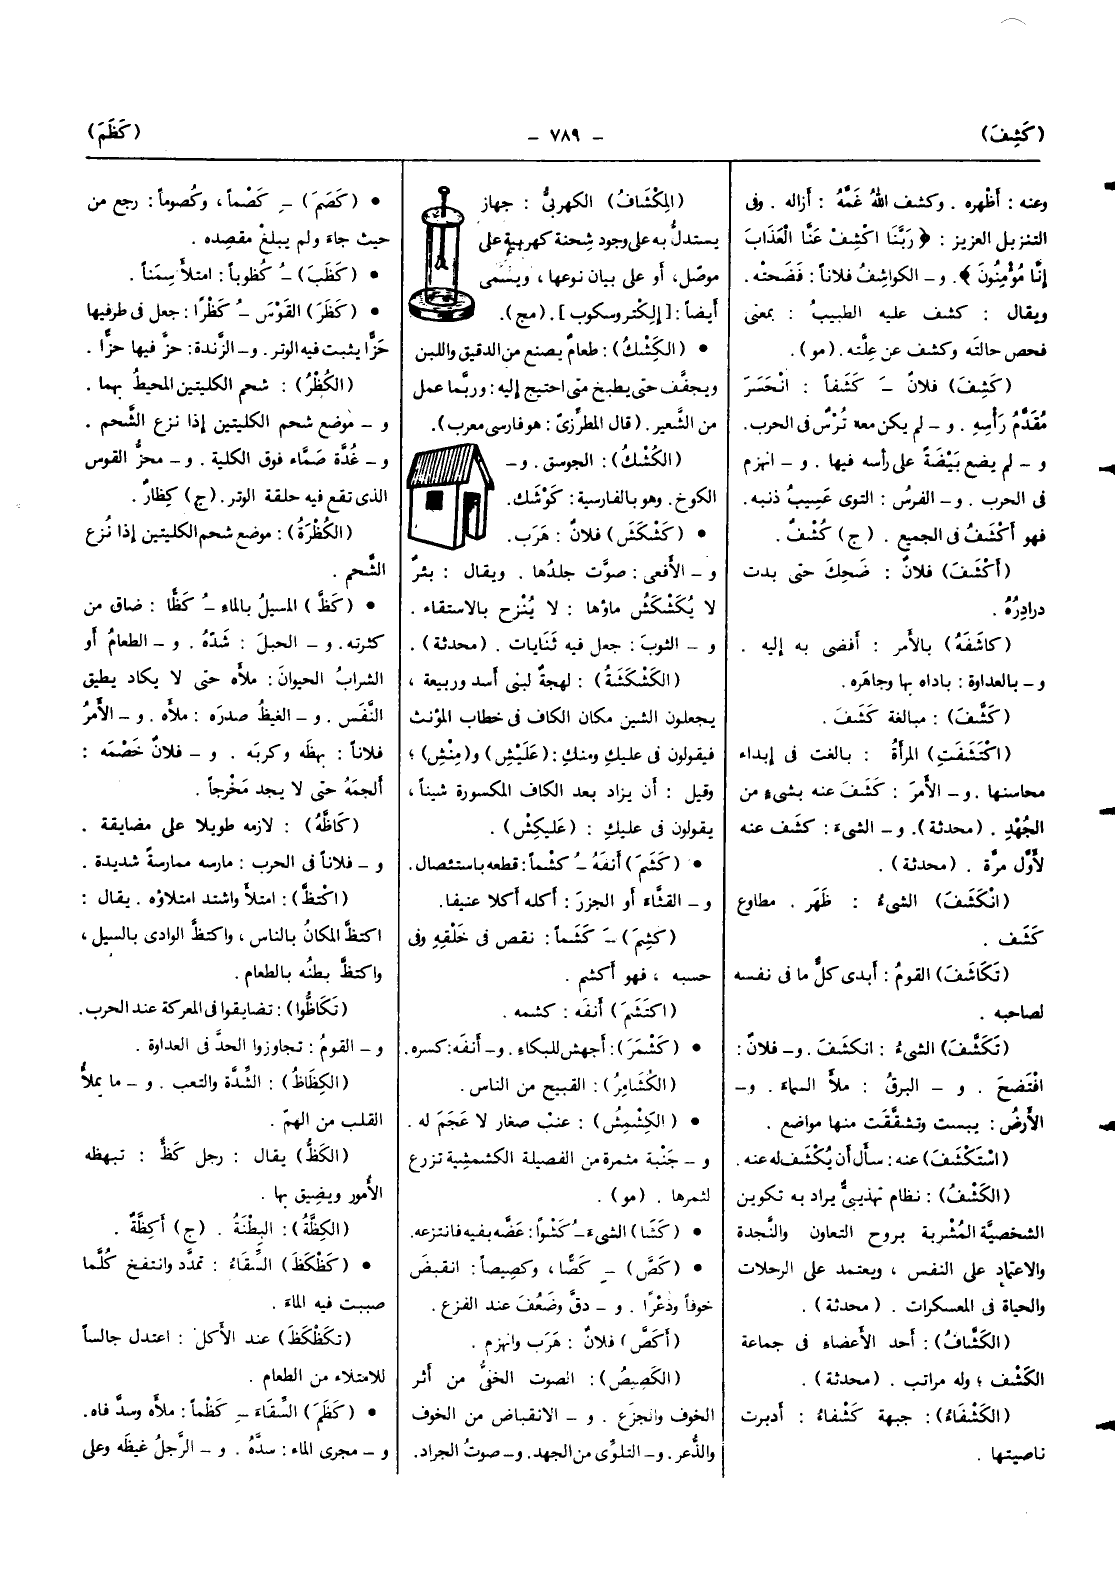 (كَشِفَ)
- ٧٨٩ -
(كَظَمَ)
وعنه : أظْهره . وكشف اللهُ غمَّهُ : أزاله . وفى
التنزيل العزيز : ﴿ رَبَّنَا اكْشِفْ عَنَّا الْعَذَابَ
إنَّا مُؤْمِنُونَ ﴾. و- الكواشِفُ فلاناً : فَضَحَتْه .
ويقال : كشف عليه الطبيبُ : بمعنى
فحص حالتَه وكشف عن عِلَّته . (مو).
(كَشِفَ) فلانٌ ـَ كَشَفاً : انْحَسَرَ
مُقَدَّمُ رَأسِهِ . و- لم يكن معه تُرْسٌ فى الحرب.
و- لم يضع بَيْضَةً على رأسه فيها . و- انهزم
فى الحرب . و- الفرسُ : التوى عَسِيبُ ذنبه.
فهو أكْشَفُ فى الجميع . (ج) كُشْفٌ .
(أكْشَفَ) فلانٌ : ضَحِكَ حتى بدت
درادِرُهُ .
(كاشَفَهُ) بالأمر : أفضى به إليه .
و- بالعداوة : باداه بها وجاهَره.
(كَشَّفَ) : مبالغة كَشَفَ .
(اكْتَشَفَتِ) المرأةُ : بالغت فى إبداء
محاسنها . و- الأمرَ : كَشَفَ عنه بشىءٍ من
الجُهْدِ . (محدثة). و- الشىءَ : كشف عنه
لأوَّل مرَّة . (محدثة) .
(انْكَشَفَ) الشىءُ : ظَهَرَ . مطاوع
كَشَف .
(تكَاشَفَ) القومُ : أبدى كلٌّ ما فى نفسه
لصاحبه .
(تكَشَّفَ) الشىءُ : انكشفَ . و- فلانٌ :
افْتَضحَ . و - البرقُ : ملأ السماءَ . و-
الأرضُ : يبست وتشقَّقت منها مواضع .
(اسْتكْشَفَ) عنه : سأل أن يُكْشَف له عنه .
(الكَشْفُ) : نظام تهذيبىٌّ يراد به تكوين
الشخصيَّة المُشْرِبة بروح التعاون والنَّجدة
والاعتماد على النفس ، ويعتمد على الرحلات
والحياة فى المعسكرات . (محدثة) .
(الكَشَّافُ) : أحد الأعضاء فى جماعة
الكشف ؛ وله مراتب . (محدثة) .
(الكَشْفَاءُ) : جبهة كَشْفاءُ : أدبرت
ناصيتها .
(المِكْشَافُ) الكهربىُّ : جهاز
يستدلُّ به على وجود شِحنة كهربية على
موصّل ، أو على بيان نوعها ، ويسَّمى
أيضاً : [إلكتروسكوب] . (مج) .
● (الكِشْكُ) : طعامٌ يصنع من الدقيق واللبن
ويجفَّف حتى يطبخ متى احتيج إليه : وربَّما عمل
من الشَّعير . (قال المطرِّزىّ : هو فارسى معرب).
(الكُشْكُ) : الجوسق . و-
الكوخ . وهو بالفارسية : كوْشَك.
● (كَشْكَشَ) فلانٌ : هَرَب.
و- الأفعى : صوَّت جلدُها . ويقال : بئرٌ
لا يُكَشْكَشُ ماؤها : لا يُنْزح بالاستقاء .
و- الثوبَ : جعل فيه ثَنَايات . (محدثة) .
(الكَشْكَشَةُ) : لهجةٌ لبنى أسد وربيعة ،
يجعلون الشين مكان الكاف فى خطاب المؤنث
فيقولون فى عليكِ ومنكِ : (عَلَيْشِ) و(مِنْشِ) ؛
وقيل : أن يزاد بعد الكاف المكسورة شيناً ،
يقولون فى عليكِ : (عَليكِشْ) .
● (كَشَمَ) أنفَهُ ـُ كَشْماً : قطعه باستئصال .
و- القثَّاءَ أو الجزرَ : أكله أكلا عنيفا.
(كَشِمَ) ـَ كَشَماً : نقص فى خَلْقِهِ وفى
حسبه ، فهو أكشم .
(اكتَشَمَ) أنفَه : كشمه .
● (كَشْمَرَ) : أجهش للبكاء . و- أنفَه : كسره.
(الكُشَامِرُ) : القبيح من الناس .
● (الكِشْمِشُ) : عنبٌ صغار لا عَجَمَ له .
و- جَنْبة مثمرة من الفصيلة الكشمشية تزرع
لثمرها . (مو) .
● (كَشَا) الشىءَ ـُ كَشْواً : عَضَّه بفيه فانتزعه.
● (كَصَّ) ـِ كَصًّا ، وكَصِيصاً : انقبض
خوفاً وذُعْرًا . و- دقَّ وضَعُفَ عند الفزع .
(أكَصَّ) فلانٌ : هَرَب وانهزم .
(الكَصِيصُ) : الصوت الخفىُّ من أثر
الخوف والجزَع . و- الانقباض من الخوف
والذُّعر . و- التلوِّى من الجهد . و- صوتُ الجراد.
● (كَصَمَ) ـِ كَصْماً ، وكُصوماً : رجع من
حيث جاءَ ولم يبلغْ مقصِده .
● (كَظَبَ) ـُ كُظوباً : امتلأ سِمَناً .
● (كَظَرَ) القَوْسَ ـُ كَظْرًا : جعل فى طرفيها
حَزًّا يثبت فيه الوتر . و- الزَّندة : حزَّ فيها حزًّا .
(الكُظْرُ) : شحم الكليتين المحيطُ بهما .
و- موضع شحم الكليتين إذا نزع الشَّحم .
و- غُدَّة صَمَّاء فوق الكلية . و- محزُّ القوس
الذى تقع فيه حلقة الوتر . (ج) كِظارٌ .
(الكُظْرَةُ) : موضع شحم الكليتين إذا نُزع
الشَّحم .
● (كَظَّ) المسيلُ بالماء ـُ كَظًّا : ضاق من
كثرته . و- الحبلَ : شَدّهُ . و- الطعامُ أو
الشرابُ الحيوانَ : ملأه حتى لا يكاد يطيق
النَّفَس . و- الغيظُ صدرَه : ملأه . و- الأمْرُ
فلاناً : بهظَه وكرَبَه . و- فلانٌ خَصْمَه :
ألجمَهُ حتى لا يجد مَخْرجاً .
(كَاظَّهُ) : لازمه طويلا على مضايقة .
و- فلاناً فى الحرب : مارسه ممارسةً شديدة .
(اكتظَّ) : امتلأ واشتد امتلاؤه . يقال :
اكتظَّ المكانُ بالناس ، واكتظَّ الوادى بالسيل ،
واكتظَّ بطنُه بالطعام .
(تكَاظُّوا) : تضايقوا فى المعركة عند الحرب .
و- القومُ : تجاوزوا الحدَّ فى العداوة .
(الكِظَاظُ) : الشِّدَّة والتعب . و- ما يملأُ
القلب من الهمّ .
(الكَظُّ) يقال : رجل كَظٌّ : تبهظه
الأُمور ويضيق بها .
(الكِظَّةُ) : البِطْنَةُ . (ج) أكِظَّةٌ .
● (كَظْكَظَ) السِّقاءُ : تمدَّد وانتفخ كُلَّما
صببت فيه الماءَ .
(تكَظْكَظَ) عند الأكل : اعتدل جالساً
للامتلاء من الطعام .
● (كَظَمَ) السِّقاءَ ـِ كَظْماً : ملأه وسدَّ فاه .
و- مجرى الماء : سدَّهُ . و- الرَّجلُ غيظَه وعلى